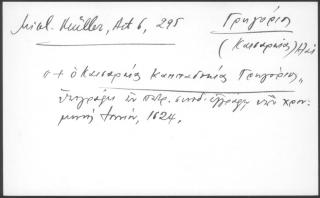 Mikl. Müller, Act 6, 295
Γρηγόριος
(Καισαρείας)
"+ ὁ Καισαρείας Καππαδοκίας Γρηγόριος"
ὑπογράφει ἐν πατρ. συνοδ. ἐγγράφῳ
μηνὶ Ἰουνίῳ, 1624.